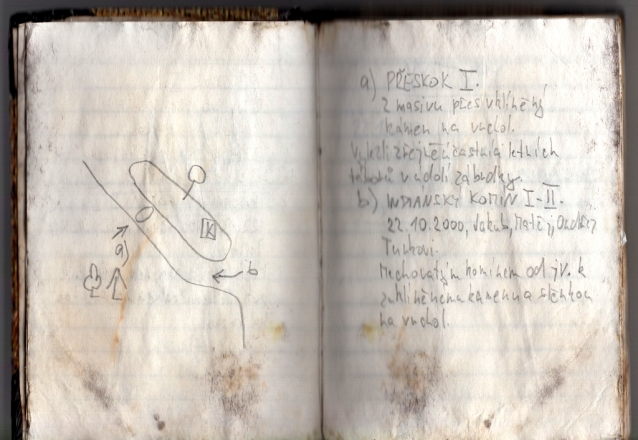 a)
K
b
a) PŘESKOK I.
Z masivu přes vklíněný
kámen na vrchol.
Vylezli zřejmě účastníci letních
táborů v údolí Zábrdky.
b) INDIÁNSKÝ KOMÍN I-II.
22.10.2000, Jakub, Matěj, Ondřej
Turkovi.
Mechovatým komínem od jv. k
zaklíněnému kamenu a stěnkou
na vrchol.